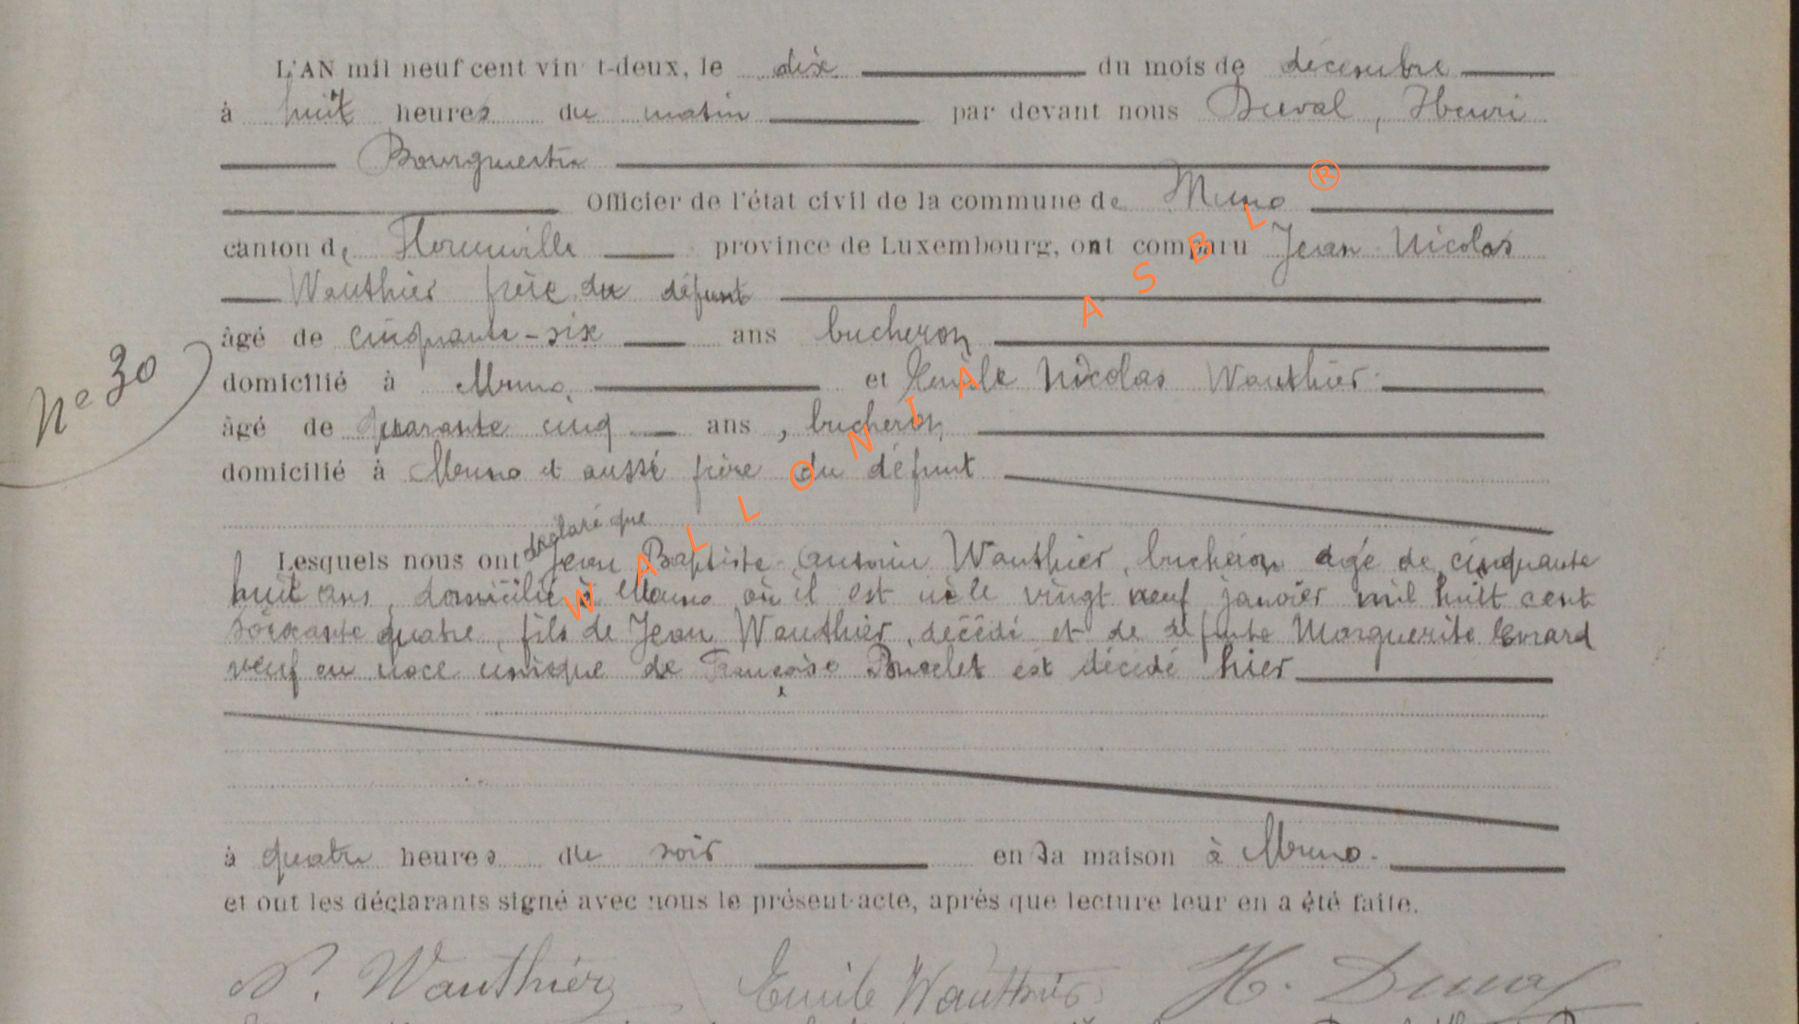 L'AN mil neuf cent vin t-deux, le dix du mois de décembre
à huit heures du matin par devant nous Duval, Henri
Bourgmestre
Officier de l'état civil de la commune de Muno
canton de Florenville province de Luxembourg, ont comparu Jean Nicolas
Wauthier frère du défunt
âgé de cinquante-six ans bucheron
N° 30
domicilié à Muno, et Emile Nicolas Wauthier
âgé de quarante cinq ans, bucheron,
domicilié à Muno et aussi frère du défunt
déclaré que
Lesquels nous ont Jean Baptiste Antoine Wauthier, bucheron agé de cinquante
huit ans, domicilié à Muno où il est né le vingt neuf janvier mil huit cent
soixante quatre, fils de Jean Wauthier, décédé et de défunte Marguerite Evrard
veuf en noce unique de Françoise est décédé hier
à quatre heures du soir en sa maison à Muno.
et ont les déclarants signé avec nous le présent acte, après que lecture leur en a été faite.
N. Wauthier Emile Wauthier H. Duval
WALLONIA ASBL ®